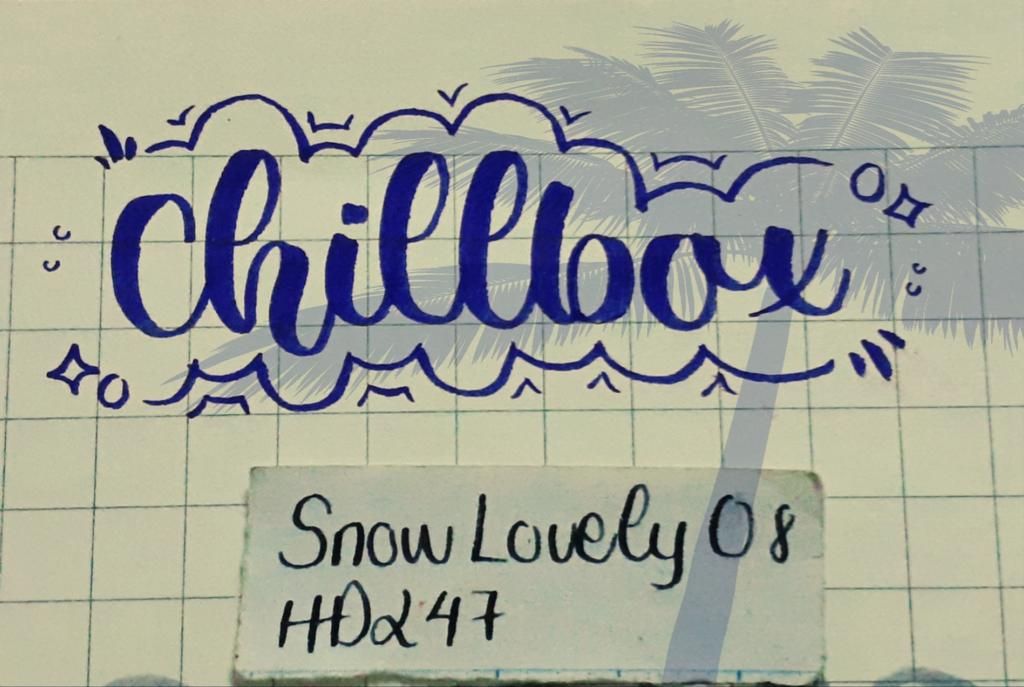 Chillbox
Snow Lovely 08
HDd247